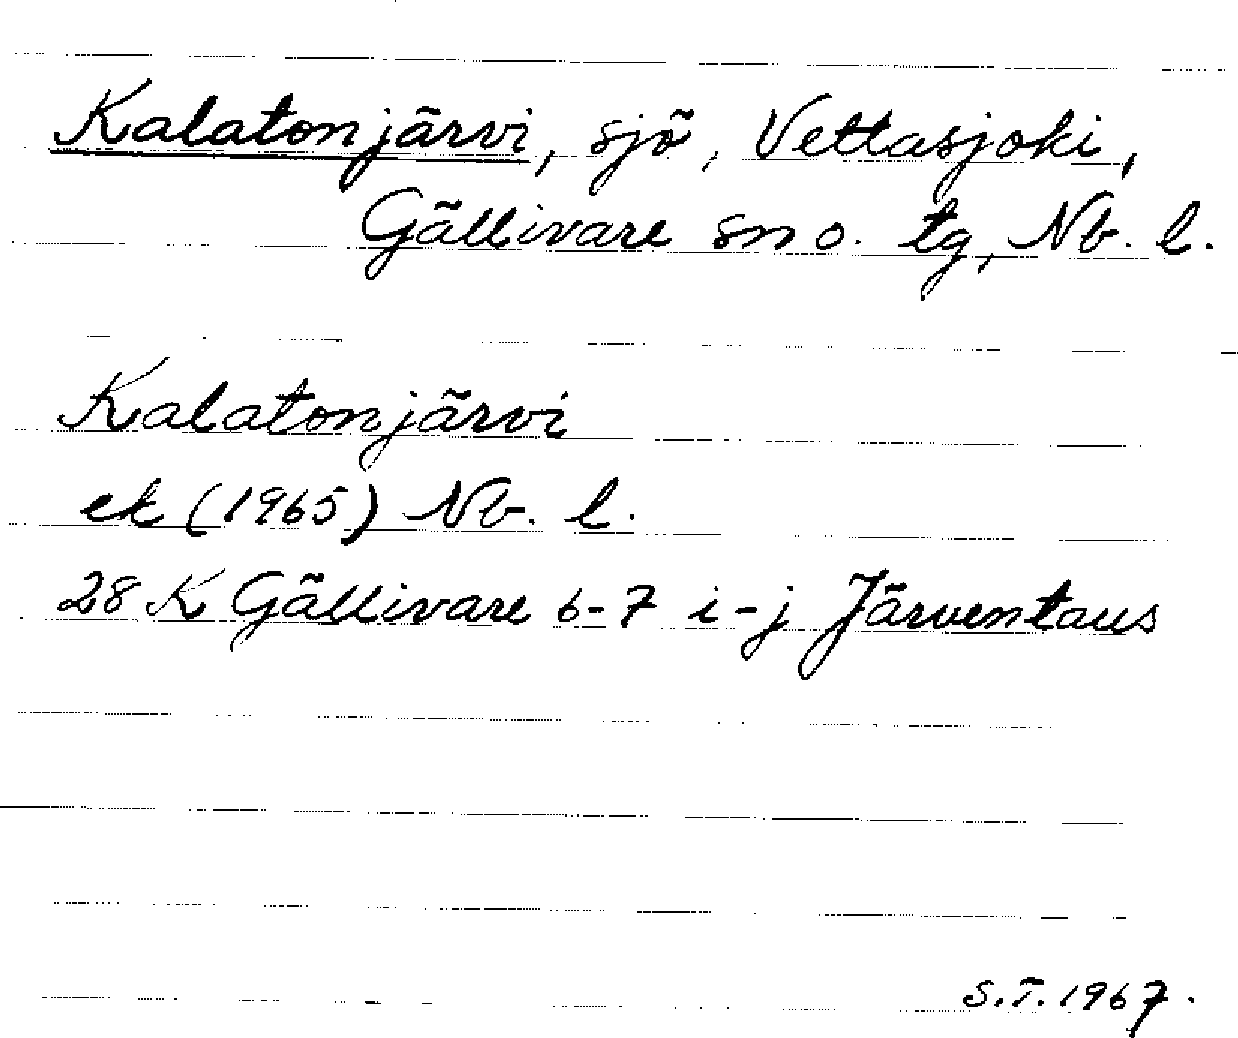 Kalatonjärvi, sjö, Vettasjoki,
Gällivare sn o. tg, Nb. l.
Kalatonjärvi
ek (1965) Nb. l.
28 K Gällivare 6-7 i-j Järventaus
S.T. 1967.